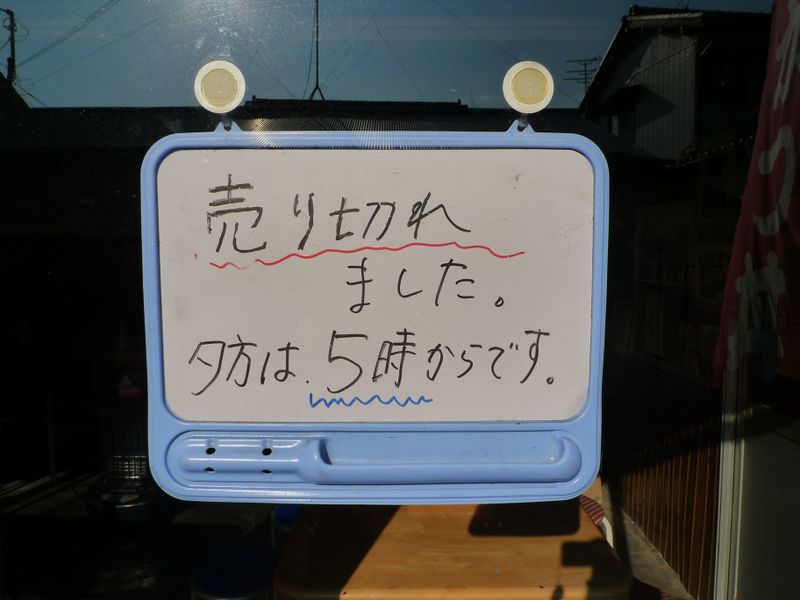 売り切れ
ました。
夕方は、5時からです。